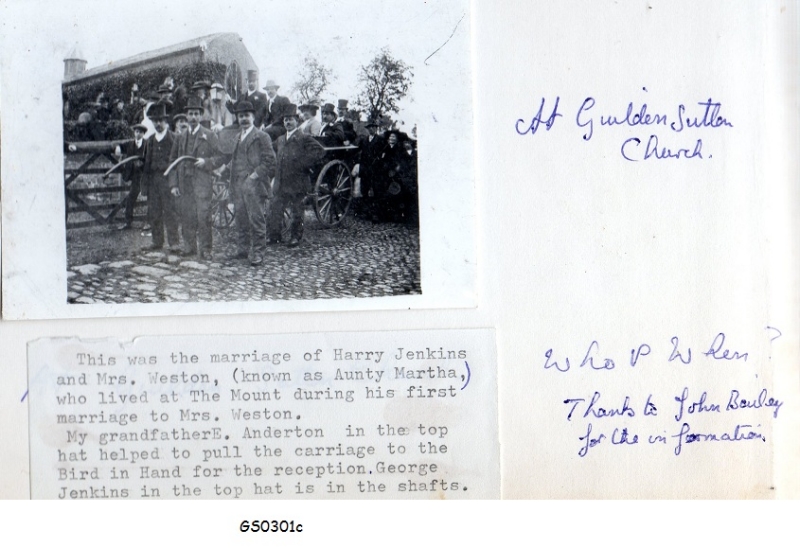 At Guilden Sutton
Church.
Who & When?
Thanks to John
for the information.
This was the marriage of Harry Jenkins
and Mrs. Weston, (known as Aunty Martha,)
who lived at The Mount during his first
marriage to Mrs. Weston.
My grandfatherE. Anderton in the top
hat helped to pull the carriage to the
Bird in Hand for the reception.George
Jenkins in the top hat is in the shafts.
GS0301c